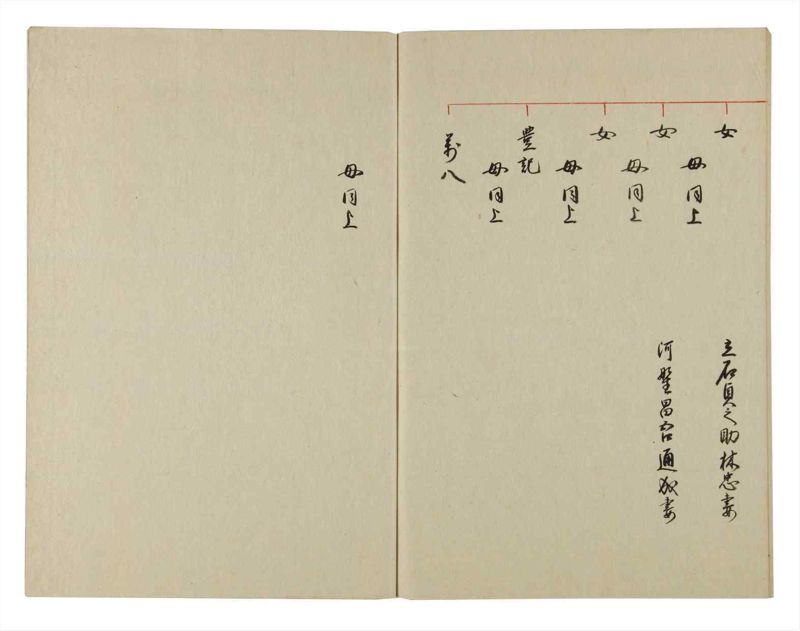 女
立石貞之助林忠妻
母同上
女
河野昌合通成妻
母同上
女
母同上
豊記
母同上
萬八
母同上